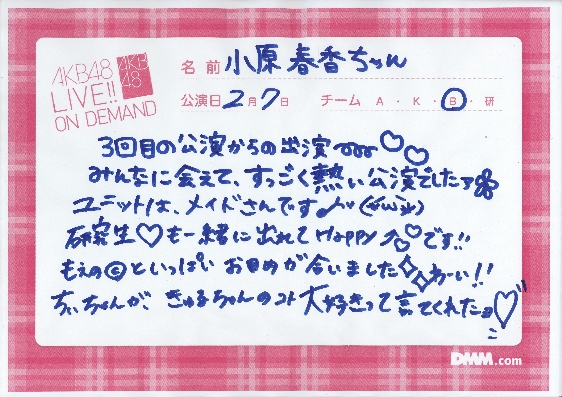 AKB48
LIVE!!
ON DEMAND
AKB
48
名前 小原春香ちゃん
公演日 2月7日 チーム A・K・B・研
3回目の公演からの出演
みんなに会えて、すっごく熱い公演でしたァ
ユニットは、メイドさんです♪
研究生♡も一緒に出れてHappy♡です!!
もえの©といっぱいお目めが合いました わーい!!
ちぃちゃんが、きゅるちゃんのコト大好きって言てくれたョ♡
DMM.com